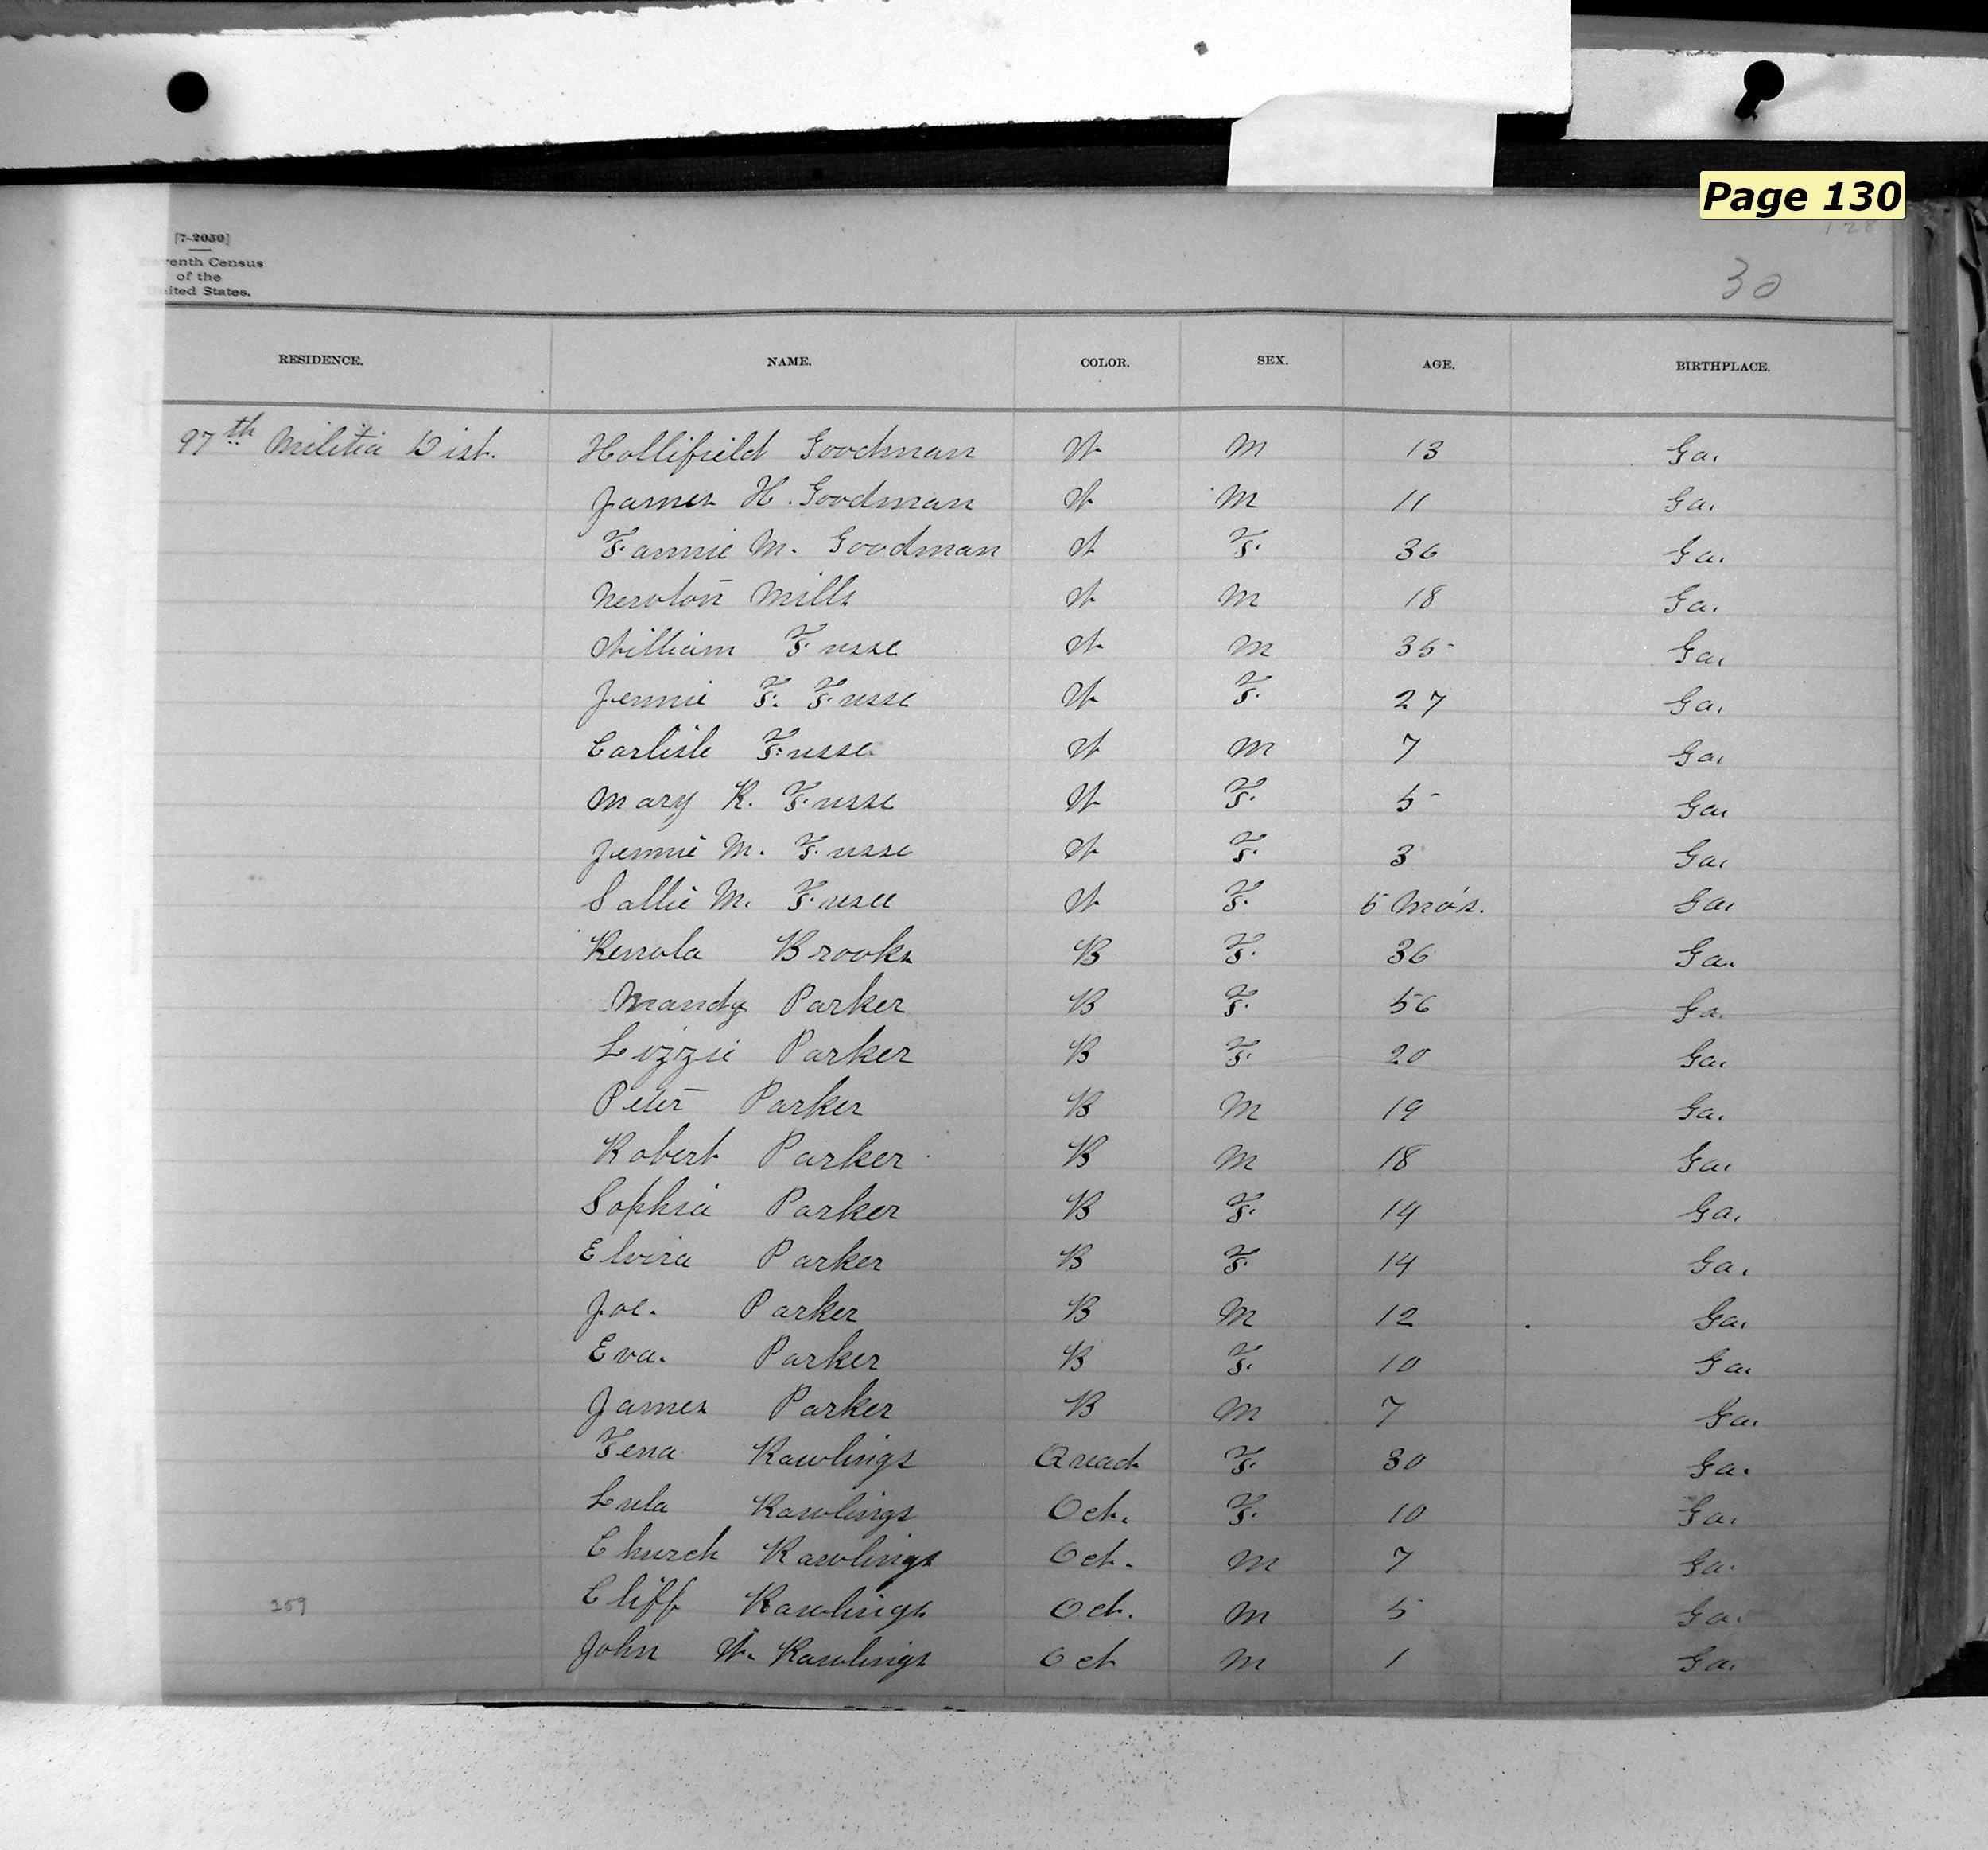 Page 130
[7-2050]
venth Census
of the
United States.
30
RESIDENCE. NAME. COLOR. SEX. AGE. BIRTHPLACE.
97th Militia Dist. Hollifield Goodman W M 13 Ga.
James H. Goodman W M 11 Ga.
Fannie M. Goodman W F. 36 Ga.
Newton Mills W M 18 Ga.
William Fusse W M 35 Ga.
Jennie F. Fusse W F. 27 Ga.
Carlisle Fusse W M 7 Ga.
Mary K. Fusse W F. 5 Ga.
Jennie M. Fusse W F. 3 Ga.
Sallie M. Fusse W F. 5 Mo's. Ga.
Brooks B F. 36 Ga.
Mandy Parker B F. 56 Ga.
Lizzie Parker B F. 20 Ga.
Peter Parker B M 19 Ga.
Robert Parker B M 18 Ga.
Sophia Parker B F. 14 Ga.
Elvira Parker B F. 14 Ga.
Joe. Parker B M 12 Ga.
Eva. Parker B F. 10 Ga.
James Parker B M 7 Ga.
Rawlings Quad. F. 30 Ga.
Lula Rawlings Oct. F. 10 Ga.
Church Rawlings Oct. M 7 Ga.
Cliff Rawlings Oct. M 5 Ga.
259
John W. Rawlings Oct M 1 Ga.